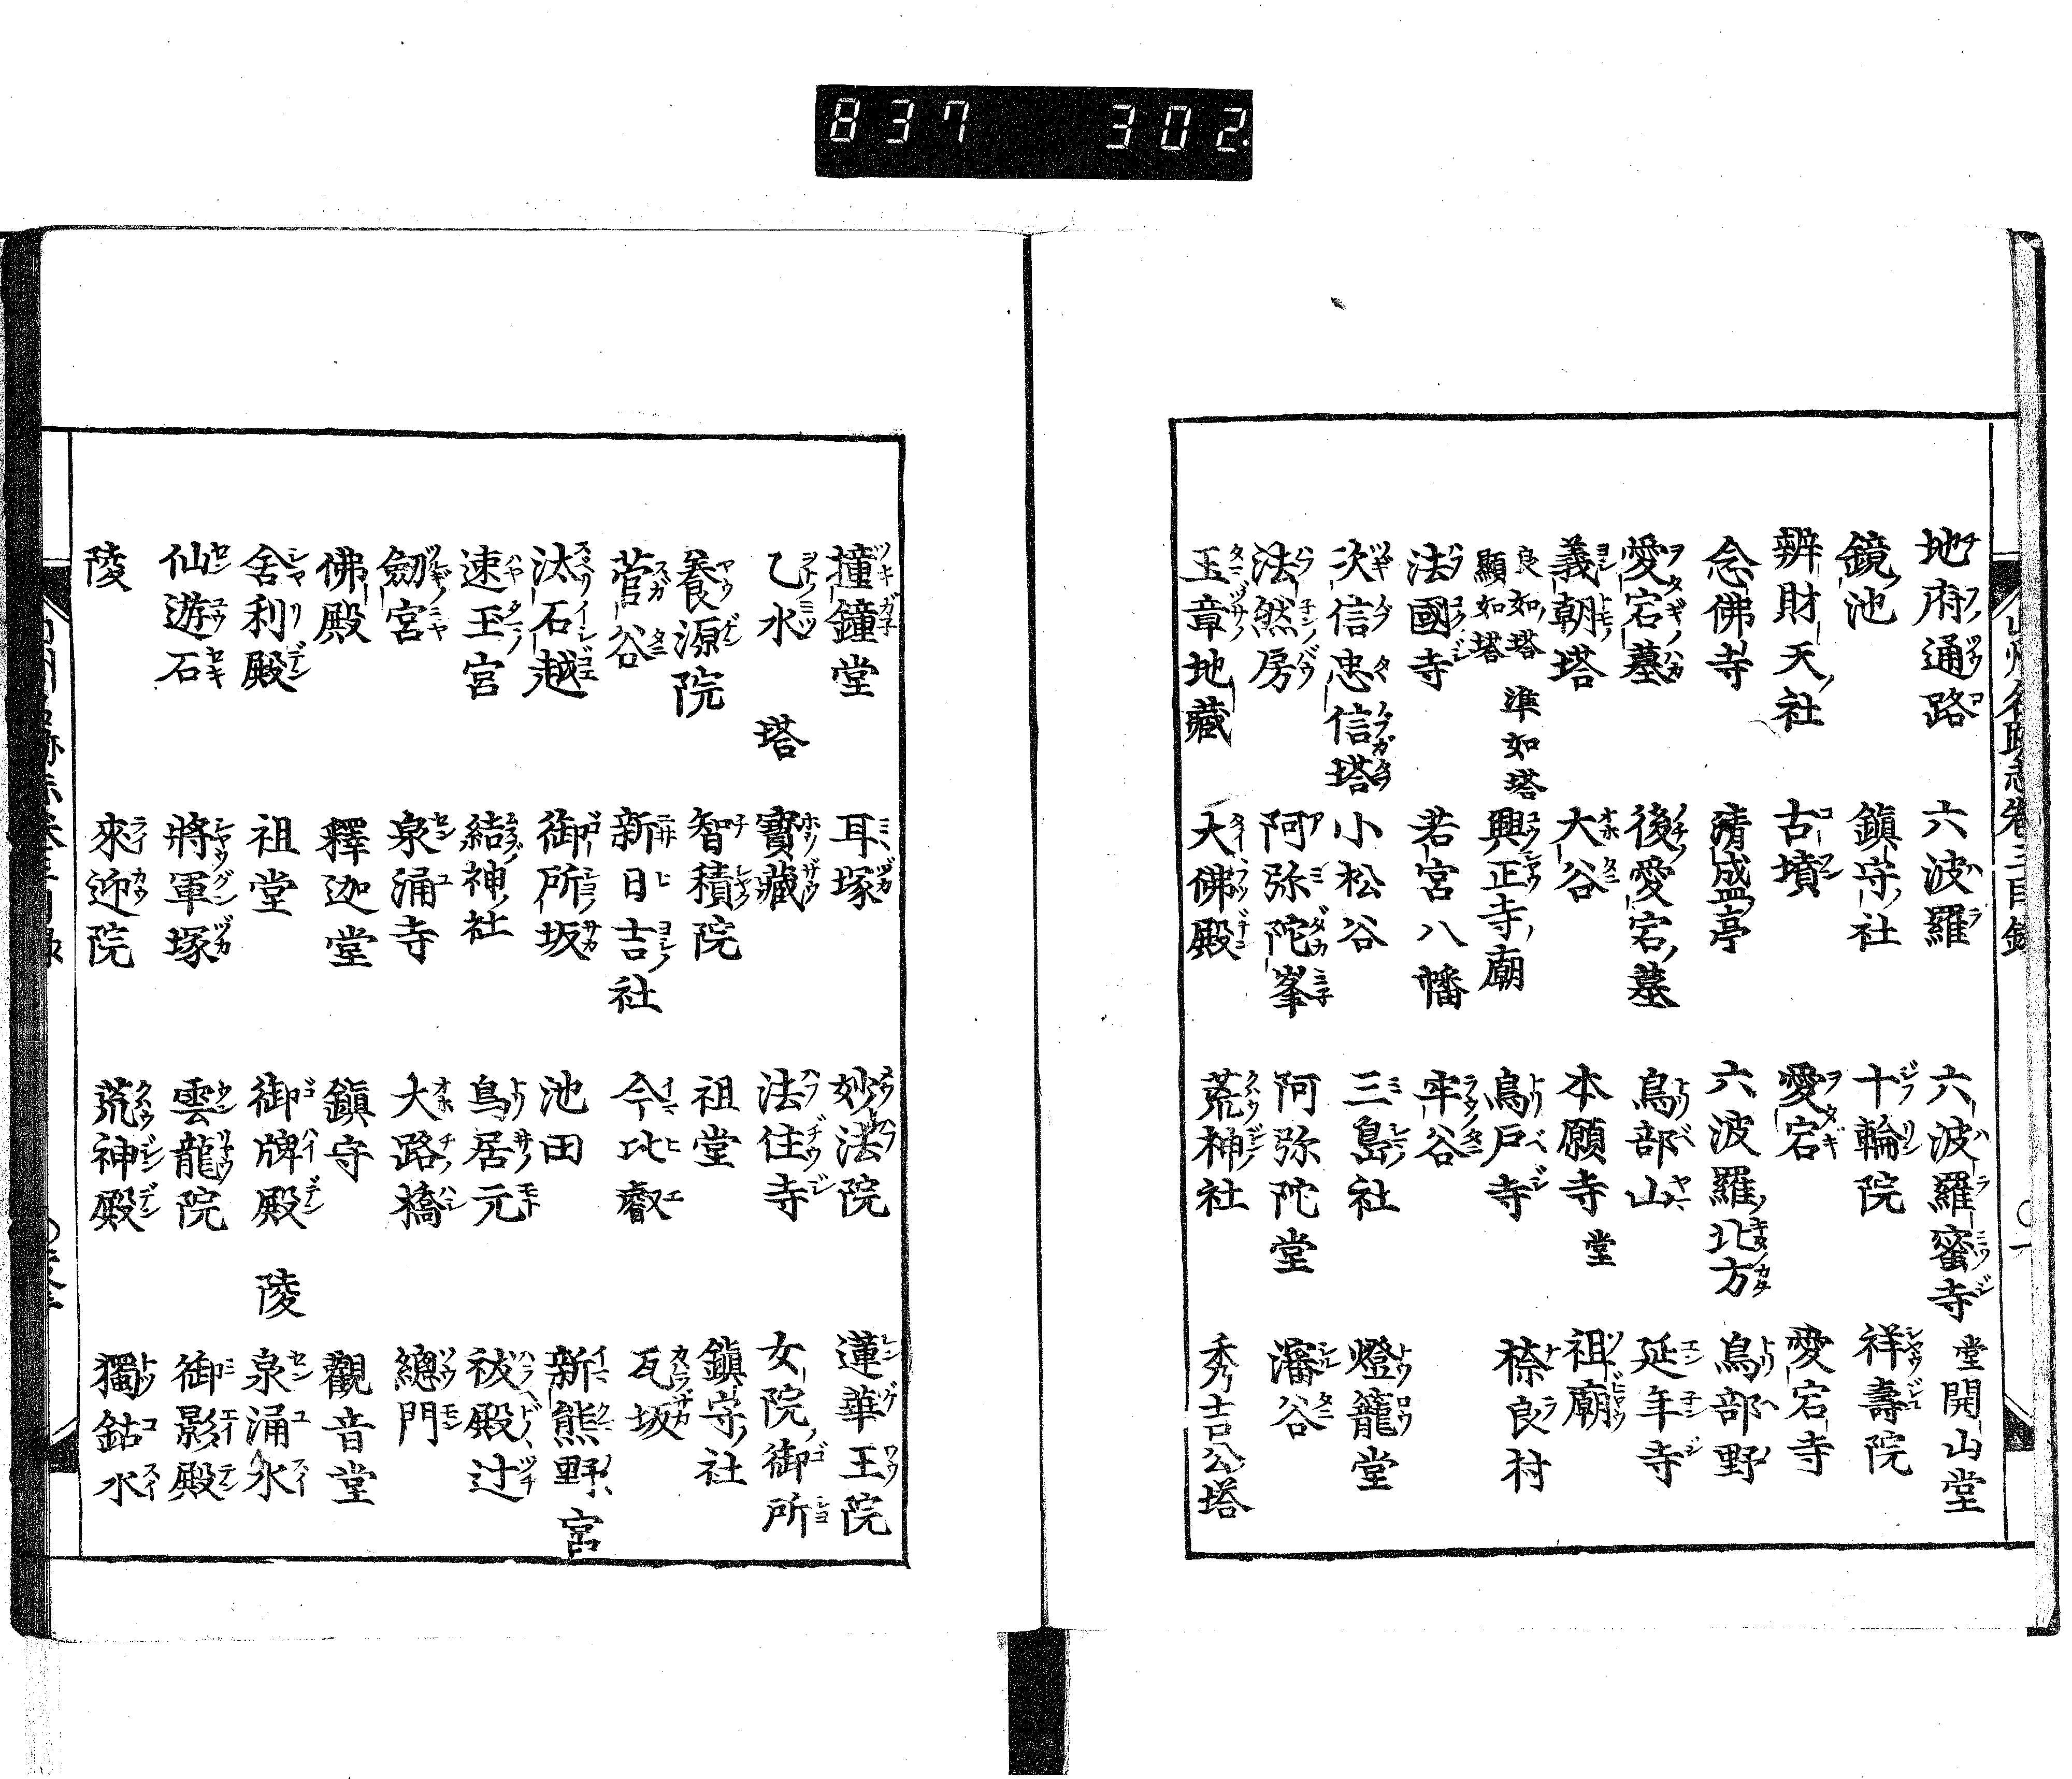 837 302
地府通路 六波羅 六波羅蜜寺 堂 開山堂
鏡池 鎮守社 十輪院 祥壽院
辨財天社 古墳 愛宕 愛宕寺
念佛寺 清盛亭 六波羅北方 鳥部野
愛宕墓 後愛宕墓 鳥部山 延年寺
義朝塔 大谷 本願寺 堂 祖廟
良如塔 準如塔
顯如塔 興正寺廟 鳥戸寺 㮈良村
法國寺 若宮八幡 牢谷
次信忠信塔 小松谷 三島社 燈籠堂
法然房 阿弥陀峯 阿弥陀堂 瀋谷
玉章地藏 大佛殿 荒神社 秀吉公塔
撞鐘堂 耳塚 妙法院 蓮華王院
乙水 塔 寶藏 法住寺 女院御所
養源院 智積院 祖堂 鎮守社
菅谷 新日吉社 今比叡 瓦坂
汰石越 御所坂 池田 新熊野宮
速玉宮 結神社 鳥居元 祓殿辻
劔宮 泉涌寺 大路橋 總門
佛殿 釋迦堂 鎮守 觀音堂
舍利殿 祖堂 御牌殿 陵 泉涌水
仙遊石 將軍塚 雲龍院 御影殿
陵 來迎院 荒神殿 獨鈷水